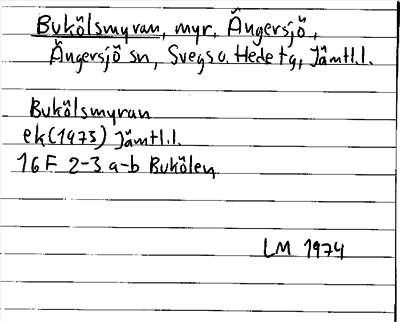 Bukölsmyran, myr, Ängersjö,
Ängersjö sn, Svegs o. Hede tg, Jämtl.l.
Bukölsmyran
ek (1973) Jämtl.l.
16 F 2-3 a-b Bukölen
LM 1974